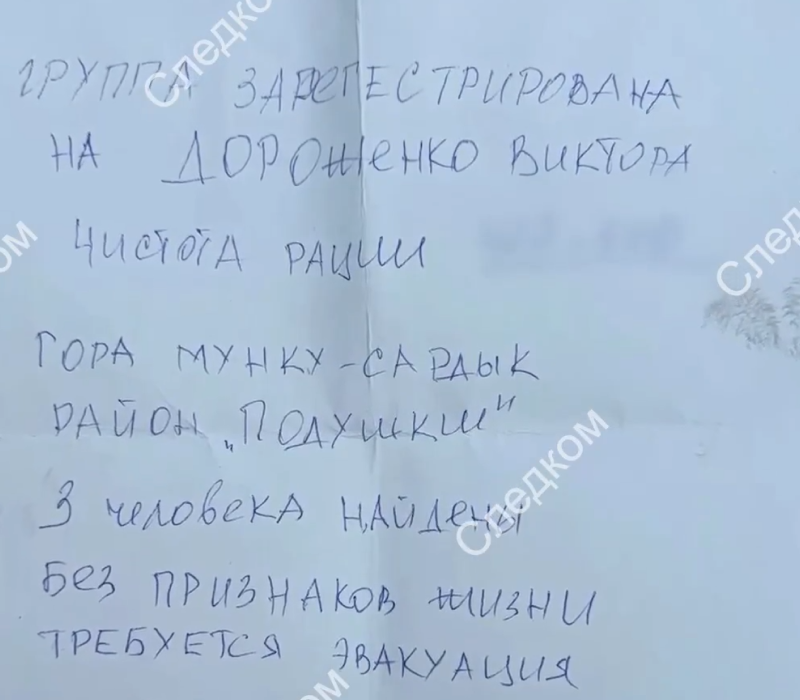 ГРУППА ЗАРЕГЕСТРИРОВАНА
НА ДОРОЖЕНКО ВИКТОРА
ЧИСТОТА РАЦИИ
ГОРА МУНКУ-САРДЫК
РАЙОН „ПОДУШКИ"
3 человека найдены
БЕЗ ПРИЗНАКОВ ЖИЗНИ
ТРЕБУЕТСЯ ЭВАКУАЦИЯ
Следком
Следком
Следком